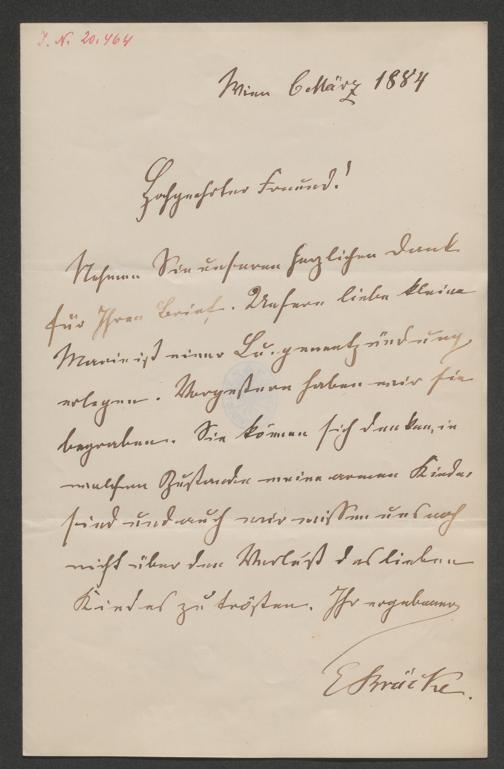 J. N. 20.464
Wien 6 März 1884
Hochgeehrter Freund!
Nehmen Sie unseren herzlichen Dank
für Ihren Brief. Unsere liebe kleine
Marie ist einer Lungenentzündung
erlegen. Vorgestern haben wir sie
begraben. Sie können sich denken, in
welchem Zustande meine armen Kinder
sind und auch wir wissen uns noch
nicht über den Verlust des lieben
Kindes zu trösten. Ihr ergebener
E Brücke.